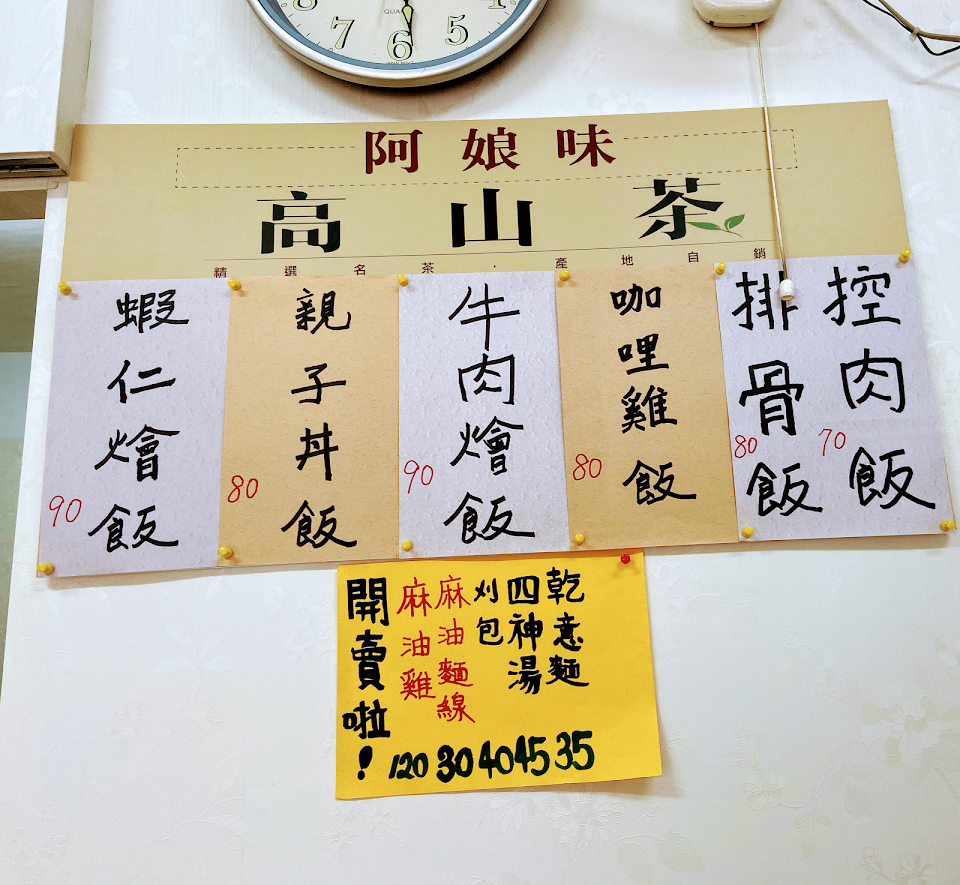 8
7
6
5
4
QUARTZ
阿娘味
高山茶
精選名茶．產地自銷
控肉飯
70
排骨飯
80
咖哩雞飯
80
牛肉燴飯
90
親子丼飯
80
蝦仁燴飯
90
乾意麵
35
四神湯
45
刈包
40
麻油麵線
30
麻油雞
120
開賣啦！